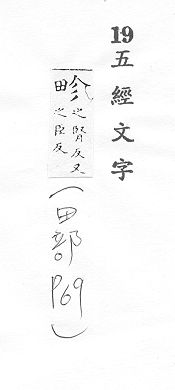 19五經文字
畛 之腎反又
之臣反
(田部
P69)